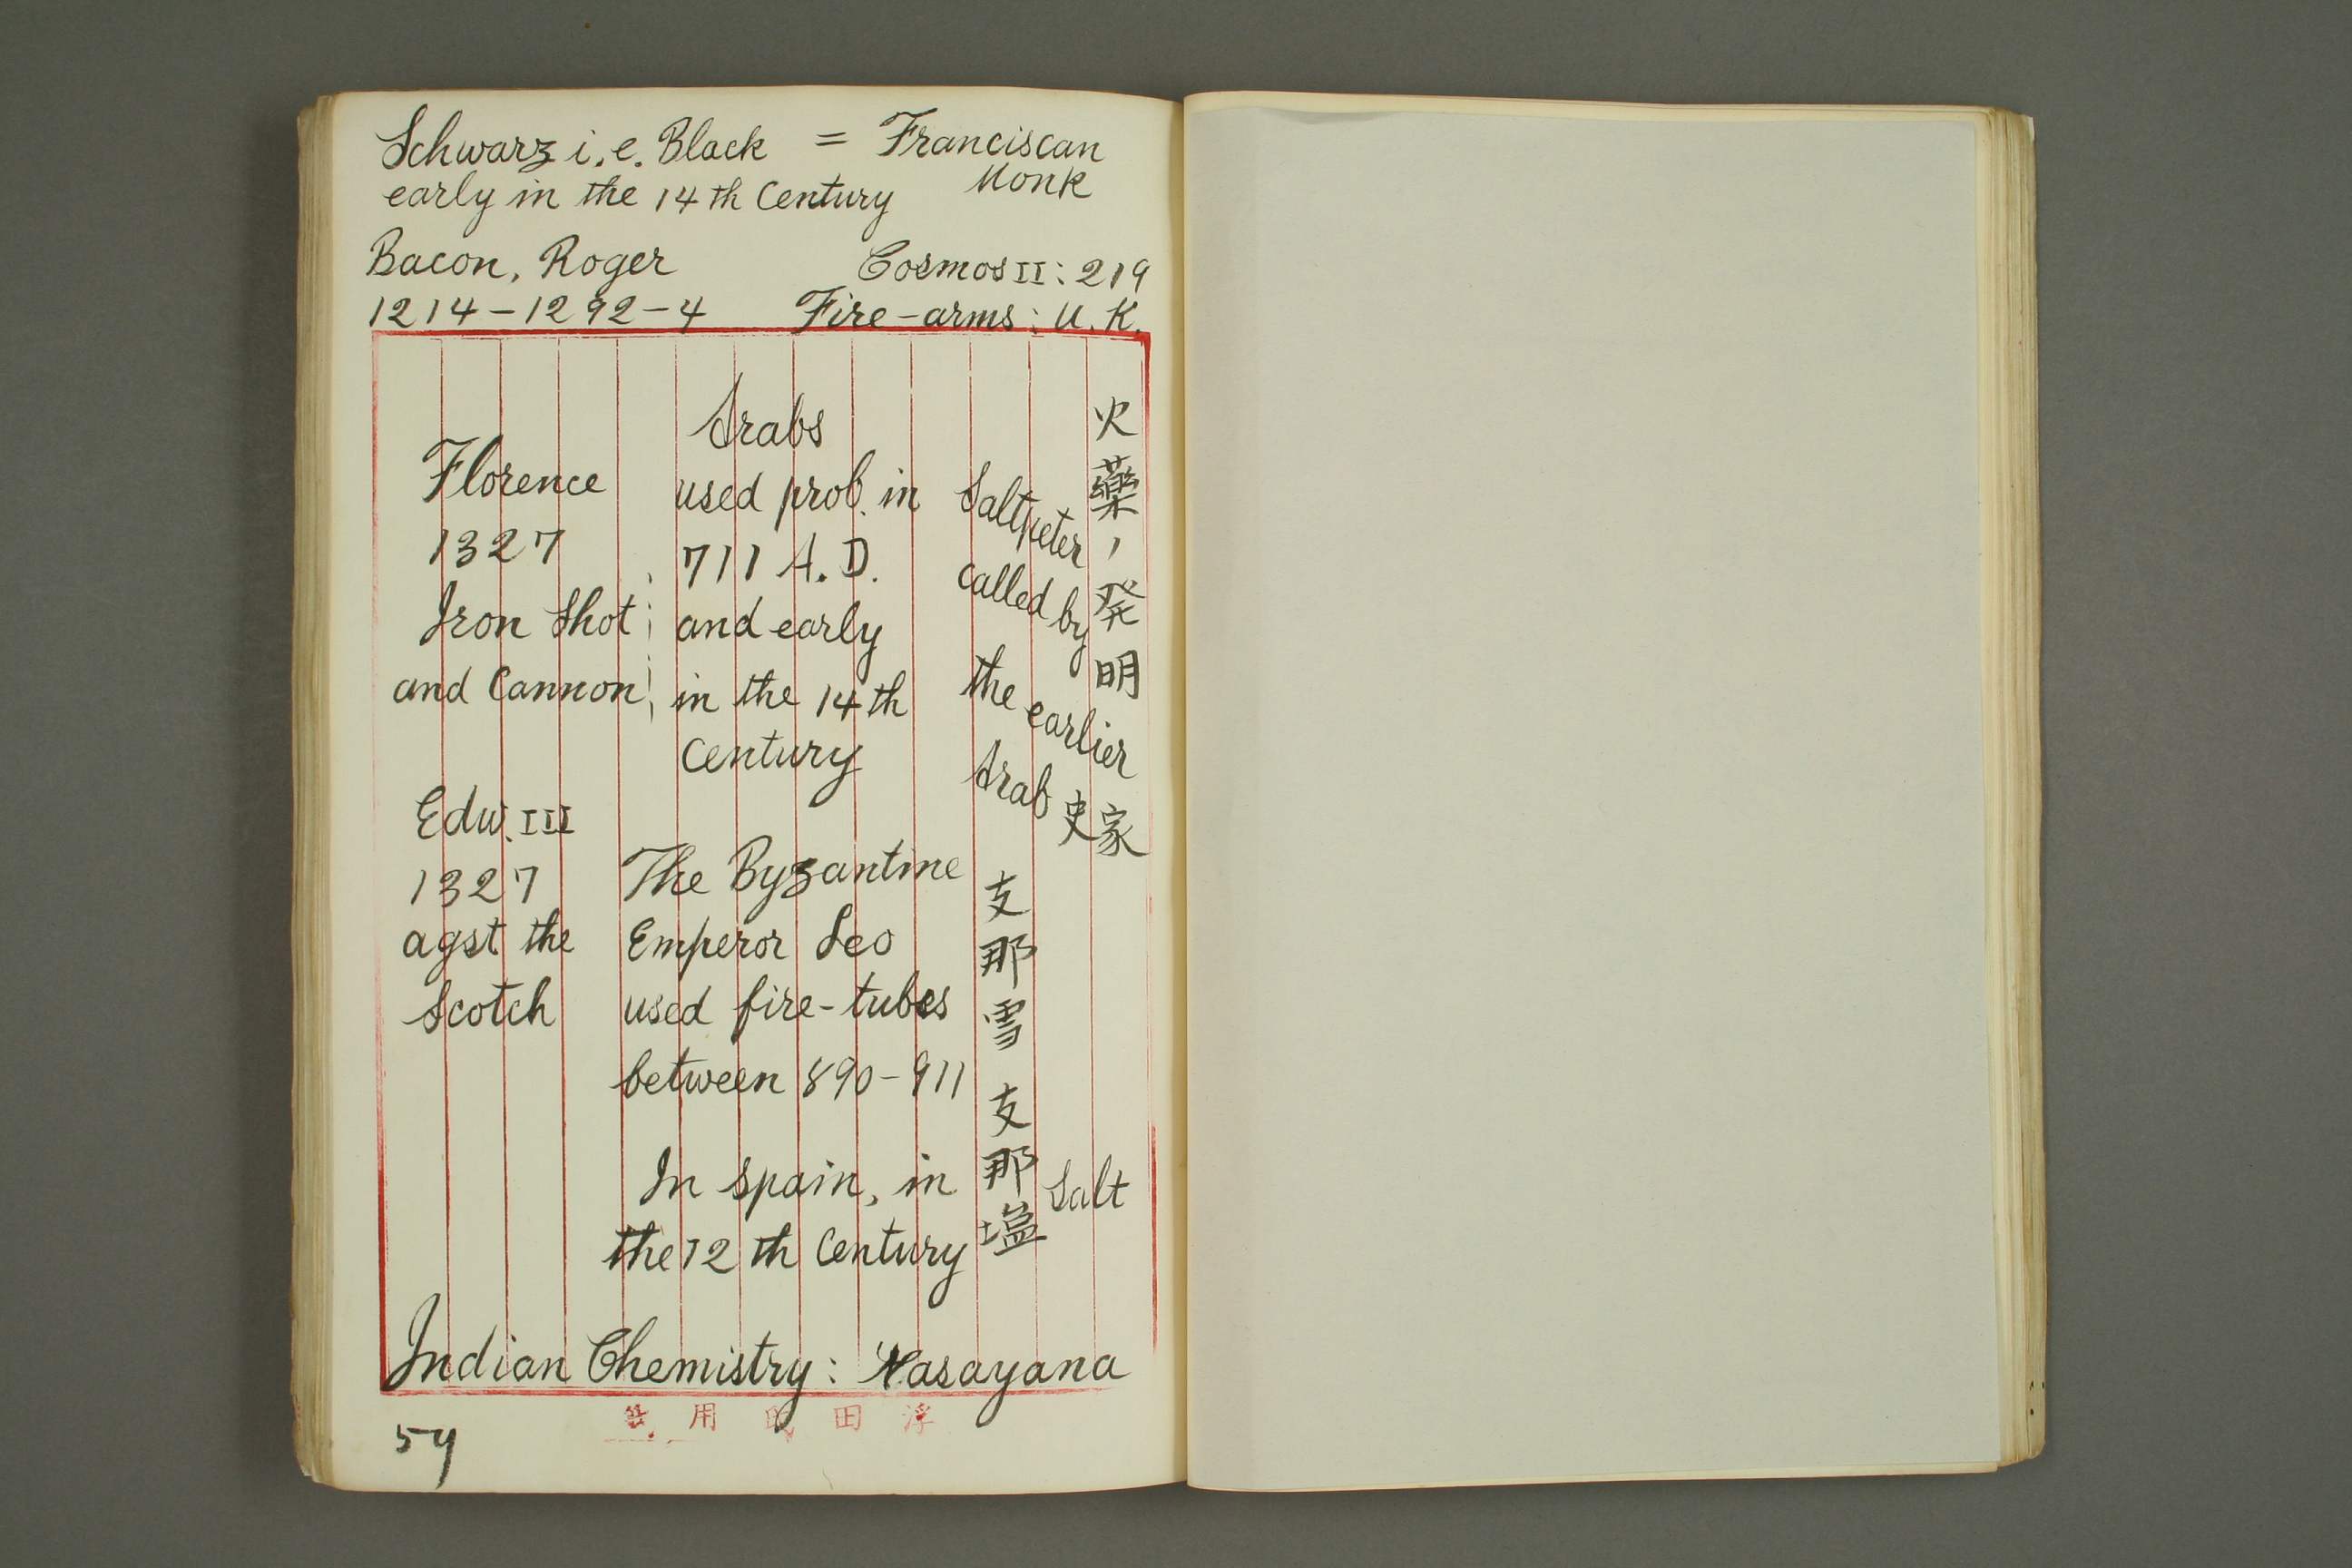 Schwarz i.e. Black = Franciscan
Monk
early in the 14th Century
Bacon, Roger Cosmos II: 219
1214-1292-4 Fire-arms: U.K.
火藥ノ発明
Saltpeter
called by
the earlier
Arab 史家
支那雪
支那塩 Salt
Arabs
used prob. in
711 A.D.
and early
in the 14th
Century
The Byzantine
Emperor Leo
used fire-tubes
between 890-911
In Spain, in
the 12th Century
Florence
1327
Iron Shot
and Cannon
Edw. III
1327
agst the
Scotch
Indian Chemistry: Rasayana
浮田 用